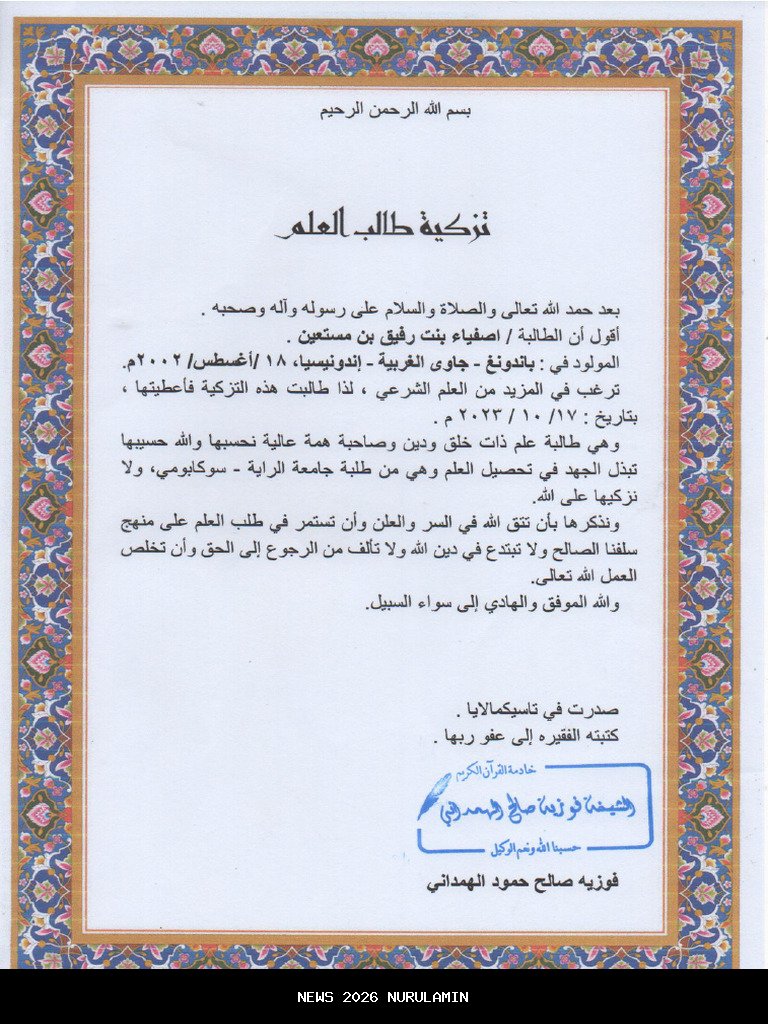 بسم الله الرحمن الرحيم
تزكية طالب العلم
بعد حمد الله تعالى والصلاة والسلام على رسوله وآله وصحبه .
أقول أن الطالبة / اصفياء بنت رفيق بن مستعين .
المولود في : باندونغ - جاوى الغربية - إندونيسيا، ١٨ /أغسطس/ ٢٠٠٢م.
ترغب في المزيد من العلم الشرعي ، لذا طالبت هذه التزكية فأعطيتها ،
بتاريخ : ١٧/ ١٠ / ٢٠٢٣ م .
وهي طالبة علم ذات خلق ودين وصاحبة همة عالية نحسبها والله حسيبها
تبذل الجهد في تحصيل العلم وهي من طلبة جامعة الراية - سوكابومي، ولا
نزكيها على الله.
ونذكرها بأن تتق الله في السر والعلن وأن تستمر في طلب العلم على منهج
سلفنا الصالح ولا تبتدع في دين الله ولا تألف من الرجوع إلى الحق وأن تخلص
العمل الله تعالى.
والله الموفق والهادي إلى سواء السبيل.
صدرت في تاسيكمالايا .
كتبته الفقيره إلى عفو ربها .
خادمة القرآن الكريم
الشيخة فوزية صالح الهمداني
حسبنا الله ونعم الوكيل
فوزيه صالح حمود الهمداني
NEWS 2026 NURULAMIN